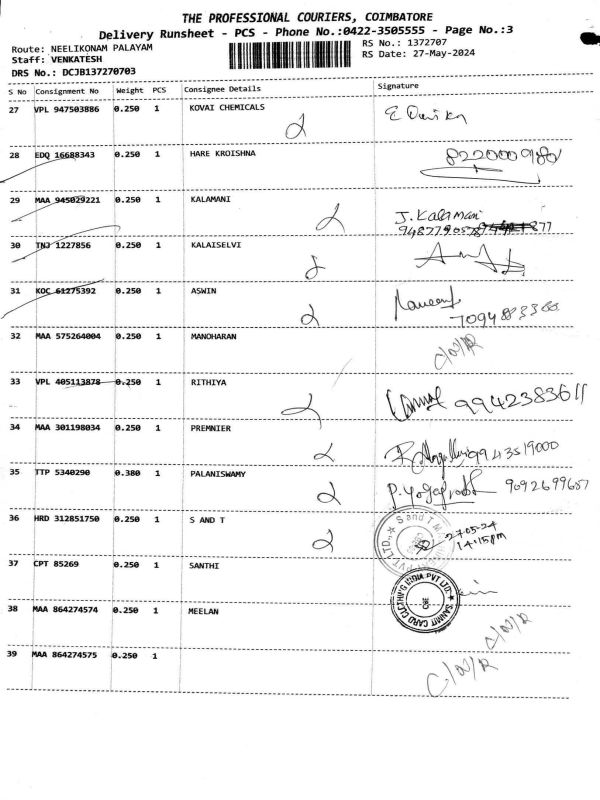 THE PROFESSIONAL COURIERS, COIMBATORE
Delivery Runsheet - PCS - Phone No.:0422-3505555 - Page No.:3
Route: NEELIKONAM PALAYAM
RS No.: 1372707
Staff: VENKATESH
RS Date: 27-May-2024
DRS No.: DCJB137270703
S No Consignment No Weight PCS Consignee Details Signature
27 VPL 947503886 0.250 1 KOVAI CHEMICALS
28 EDQ 16688343 0.250 1 HARE KROISHNA
29 MAA 945029221 0.250 1 KALAMANI J. Kalamani
30 TNJ 1227856 0.250 1 KALAISELVI
31 KOC 61275392 0.250 1 ASWIN Naveen
7094883388
32 MAA 575264004 0.250 1 MANOHARAN
33 VPL 405113878 0.250 1 RITHIYA 9942383611
34 MAA 301198034 0.250 1 PREMNIER 9943519000
35 TTP 5340290 0.380 1 PALANISWAMY 9092699687
36 HRD 312851750 0.250 1 S AND T 27-05-24
14:15pm
37 CPT 85269 0.250 1 SANTHI
38 MAA 864274574 0.250 1 MEELAN
39 MAA 864274575 0.250 1